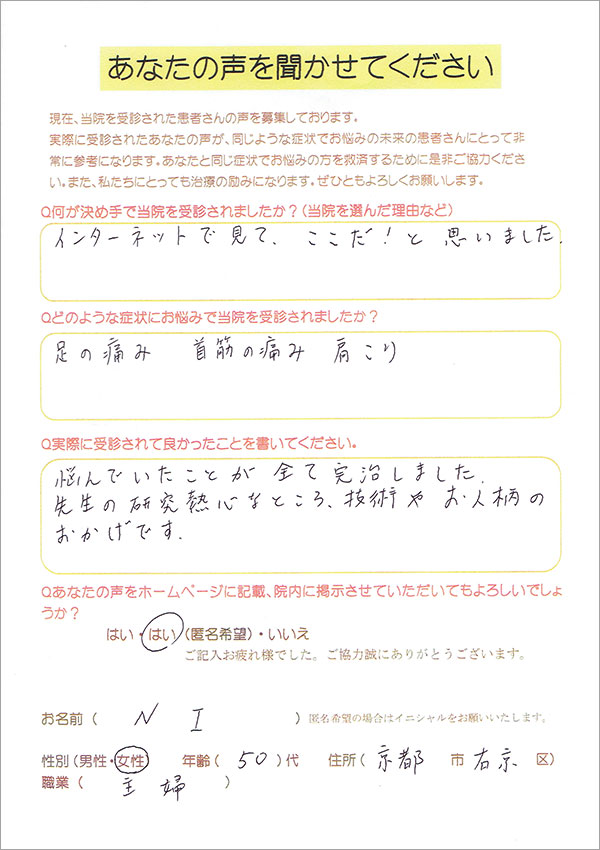 あなたの声を聞かせてください
現在、当院を受診された患者さんの声を募集しております。
実際に受診されたあなたの声が、同じような症状でお悩みの未来の患者さんにとって非
常に参考になります。あなたと同じ症状でお悩みの方を救済するために是非ご協力くださ
い。また、私たちにとっても治療の励みになります。ぜひともよろしくお願いします。
Q何が決め手で当院を受診されましたか？（当院を選んだ理由など）
インターネットで見て、ここだ！と思いました。
Qどのような症状にお悩みで当院を受診されましたか？
足の痛み 首筋の痛み 肩こり
Q実際に受診されて良かったことを書いてください。
悩んでいたことが全て完治しました。
先生の研究熱心なところ、技術やお人柄の
おかげです。
Qあなたの声をホームページに記載、院内に掲示させていただいてもよろしいでしょ
うか？
はい・はい（匿名希望）・いいえ
ご記入お疲れ様でした。ご協力誠にありがとうございます。
お名前（ N I ）匿名希望の場合はイニシャルをお願いいたします。
性別（男性・女性） 年齢（ 50 ）代 住所（ 京都 市 右京 区）
職業（ 主婦 ）